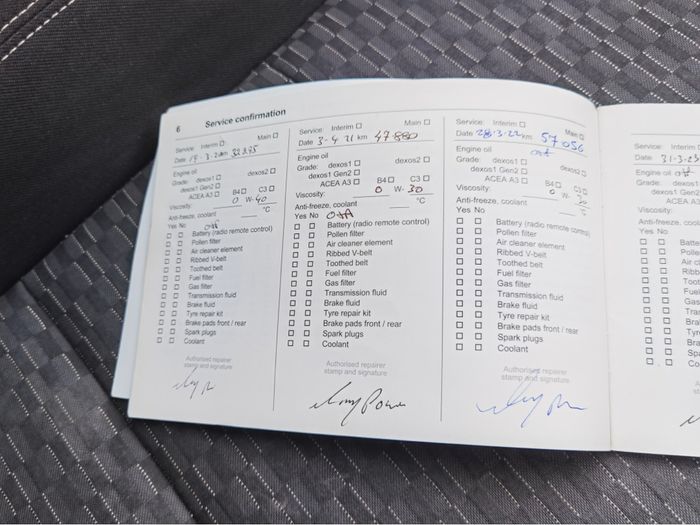 6 Service confirmation
Service: Interim ☐ Main ☐
Date
Engine oil
Grade: dexos1 ☐ dexos2 ☐
dexos1 Gen2 ☐
ACEA A3 ☐ B4 ☐ C3 ☐
Viscosity: 0 W- 40
Anti-freeze, coolant °C
Yes No
☐ ☐ Battery (radio remote control)
☐ ☐ Pollen filter
☐ ☐ Air cleaner element
☐ ☐ Ribbed V-belt
☐ ☐ Toothed belt
☐ ☐ Fuel filter
☐ ☐ Gas filter
☐ ☐ Transmission fluid
☐ ☐ Brake fluid
☐ ☐ Tyre repair kit
☐ ☐ Brake pads front / rear
☐ ☐ Spark plugs
☐ ☐ Coolant
Authorised repairer
stamp and signature
Service: Interim ☐ Main ☐
Date 3-4 21 km 47880
Engine oil
Grade: dexos1 ☐ dexos2 ☐
dexos1 Gen2 ☐
ACEA A3 ☐ B4 ☐ C3 ☐
Viscosity: 0 W- 30
Anti-freeze, coolant °C
Yes No
☐ ☐ Battery (radio remote control)
☐ ☐ Pollen filter
☐ ☐ Air cleaner element
☐ ☐ Ribbed V-belt
☐ ☐ Toothed belt
☐ ☐ Fuel filter
☐ ☐ Gas filter
☐ ☐ Transmission fluid
☐ ☐ Brake fluid
☐ ☐ Tyre repair kit
☐ ☐ Brake pads front / rear
☐ ☐ Spark plugs
☐ ☐ Coolant
Authorised repairer
stamp and signature
Service: Interim ☐ Main ☐
Date 28-3-22 km 57056
Engine oil
Grade: dexos1 ☐ dexos2 ☐
dexos1 Gen2 ☐
ACEA A3 ☐ B4 ☐ C3 ☐
Viscosity: 0 W- 30
Anti-freeze, coolant °C
Yes No
☐ ☐ Battery (radio remote control)
☐ ☐ Pollen filter
☐ ☐ Air cleaner element
☐ ☐ Ribbed V-belt
☐ ☐ Toothed belt
☐ ☐ Fuel filter
☐ ☐ Gas filter
☐ ☐ Transmission fluid
☐ ☐ Brake fluid
☐ ☐ Tyre repair kit
☐ ☐ Brake pads front / rear
☐ ☐ Spark plugs
☐ ☐ Coolant
Authorised repairer
stamp and signature
Service: Interim
Date 31-3-23
Engine oil
Grade: dexos1
dexos1
ACEA
Viscosity:
Anti-freeze, cool
Yes No
☐ ☐ Batte
☐ ☐ Polle
☐ ☐ Air cl
☐ ☐ Ribb
☐ ☐ Toot
☐ ☐ Fuel
☐ ☐ Gas
☐ ☐ Tra
☐ ☐ Bra
☐ ☐ Tyr
☐ ☐ Bra
☐ ☐ Spa
☐ ☐ Co